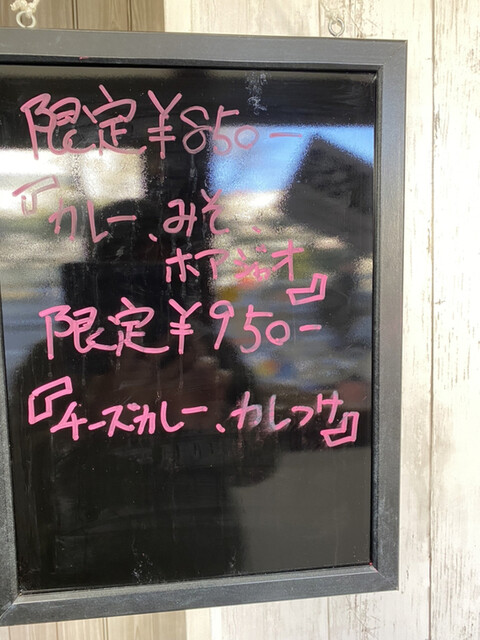 限定¥850-
『カレー、みそ、
ホアジャオ』
限定¥950-
『チーズカレー、カレつけ』